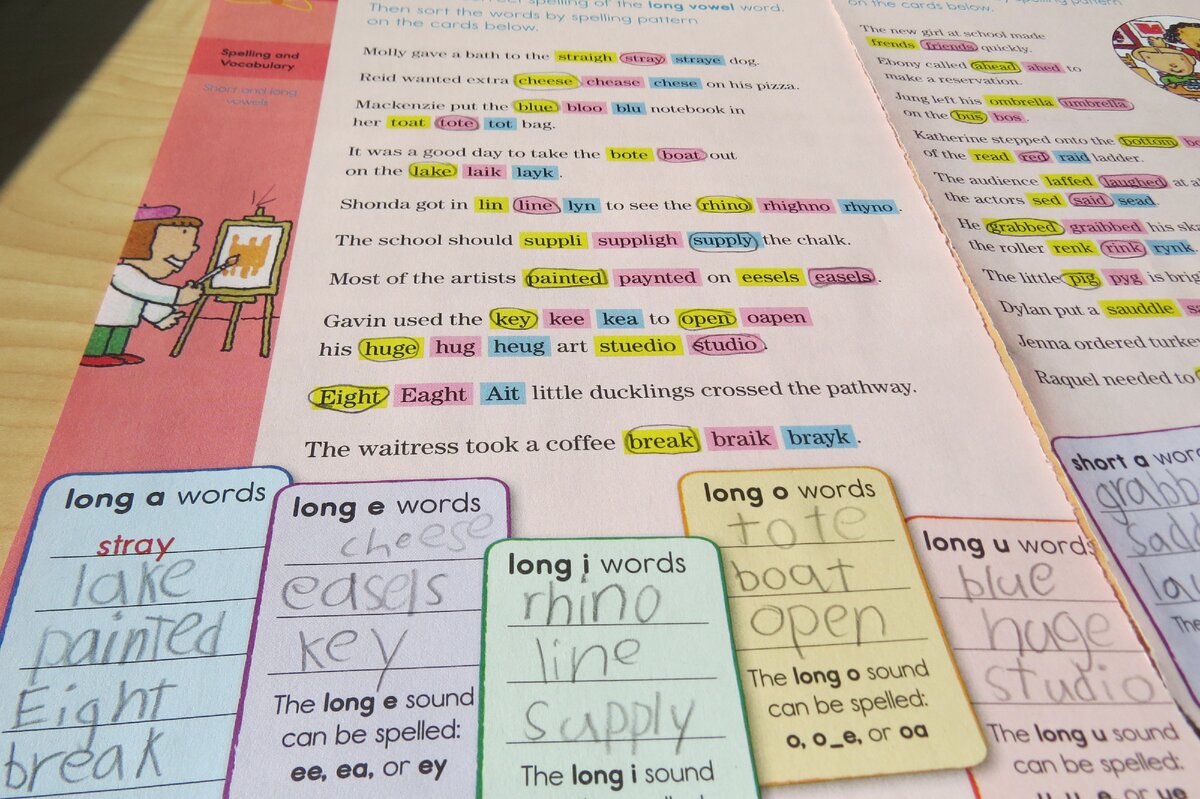 correct spelling of the long vowel word.
Then sort the words by spelling pattern
on the cards below.
Spelling and
Vocabulary
Short and long
vowels
Molly gave a bath to the straigh stray straye dog.
Reid wanted extra cheese chease chese on his pizza.
Mackenzie put the blue bloo blu notebook in
her toat tote tot bag.
It was a good day to take the bote boat out
on the lake laik layk.
Shonda got in lin line lyn to see the rhino rhighno rhyno.
The school should suppli suppligh supply the chalk.
Most of the artists painted paynted on eesels easels.
Gavin used the key kee kea to open oapen
his huge hug heug art stuedio studio.
Eight Eaght Ait little ducklings crossed the pathway.
The waitress took a coffee break braik brayk.
long a words
stray
lake
painted
Eight
break
long e words
cheese
easels
key
The long e sound
can be spelled:
ee, ea, or ey
long i words
rhino
line
supply
The long i sound
long o words
tote
boat
open
The long o sound
can be spelled:
o, o_e, or oa
long u words
blue
huge
studio
The long u sound
can be spelled:
u, u_e, or ue
by spelling pattern
on the cards below.
The new girl at school made
frends friends quickly.
Ebony called ahead ahed to
make a reservation.
Jung left his ombrella umbrella
on the bus bos.
Katherine stepped onto the bottom
of the read red raid ladder.
The audience laffed laughed at
the actors sed said sead.
He grabbed graibbed his
the roller renk rink rynk
The little pig pyg is
Dylan put a sauddle
Jenna ordered
Raquel needed to
short a
The